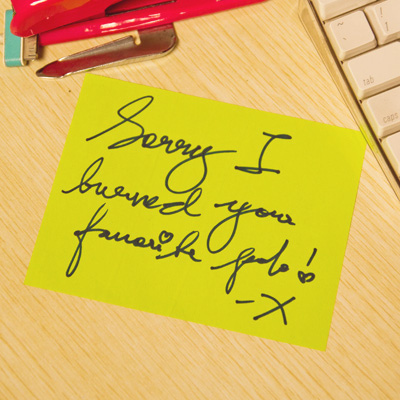 Sorry I
burned your
favorite
-X
tab